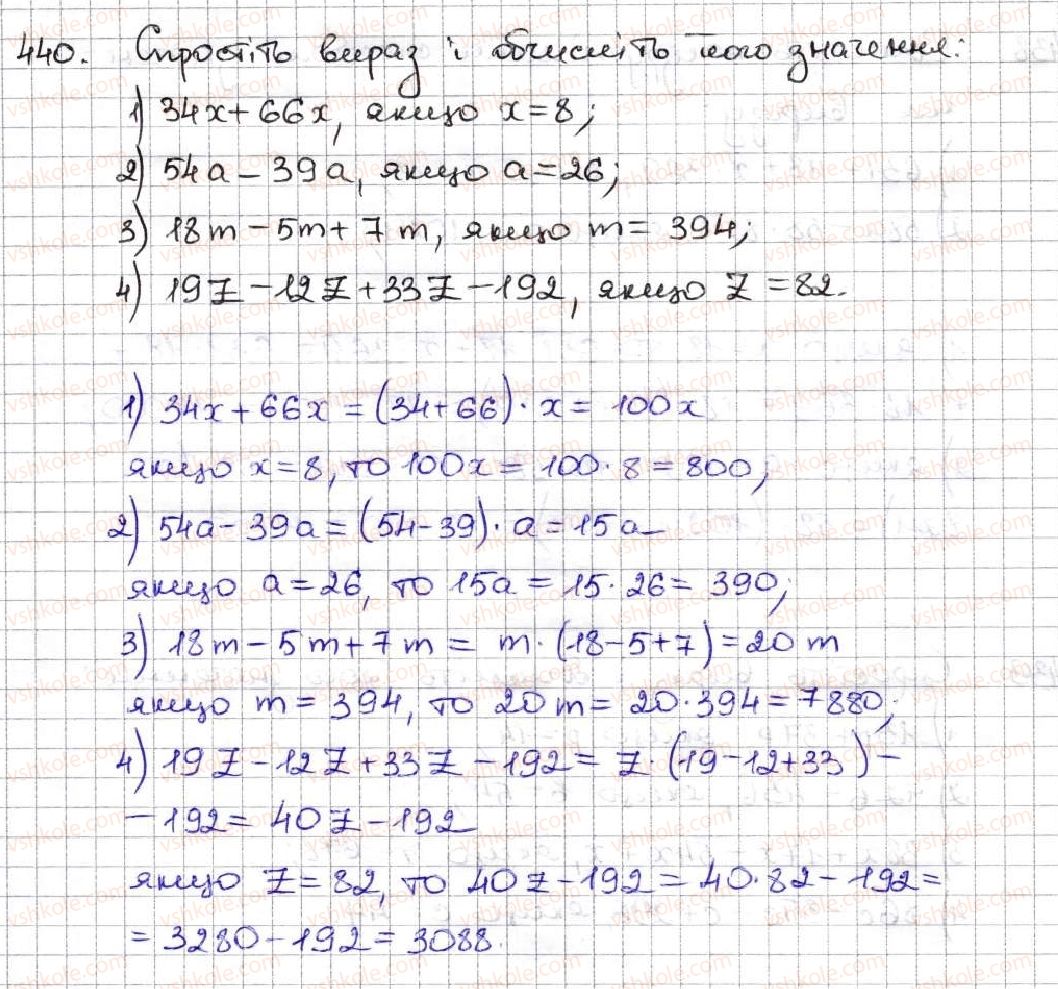 440. Спростіть вираз і обчисліть його значення:
1) 34x+66x, якщо x=8;
2) 54a-39a, якщо a=26;
3) 18m-5m+7m, якщо m=394;
4) 19z-12z+33z-192, якщо z=82.
1) 34x+66x=(34+66)·x=100x
якщо x=8, то 100x=100·8=800;
2) 54a-39a=(54-39)·a=15a
якщо a=26, то 15a=15·26=390;
3) 18m-5m+7m=m·(18-5+7)=20m
якщо m=394, то 20m=20·394=7880;
4) 19z-12z+33z-192=z·(19-12+33)-
-192=40z-192
якщо z=82, то 40z-192=40·82-192=
=3280-192=3088.